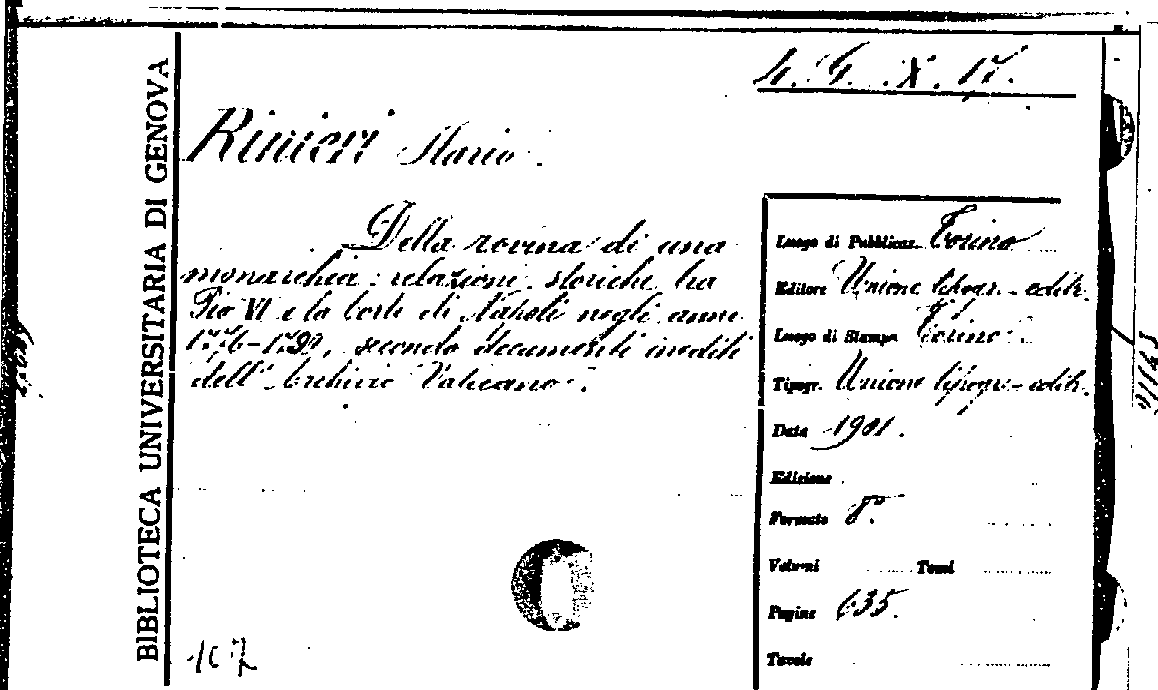 BIBLIOTECA UNIVERSITARIA DI GENOVA
4. G. X. 17.
Rinieri Ilario.
Della rovina di una
monarchia: relazioni storiche tra
Pio VI e la Corte di Napoli negli anni
1776-1799, secondo documenti inediti
dell'Archivio Vaticano.
107
Luogo di Pubblicaz. Torino
Editore Unione tipogr.-editr.
Luogo di Stampa Torino
Tipogr. Unione tipogr.-editr.
Data 1901.
Edizione
Formato 8°.
Volumi Tomi
Pagine 635.
Tavole